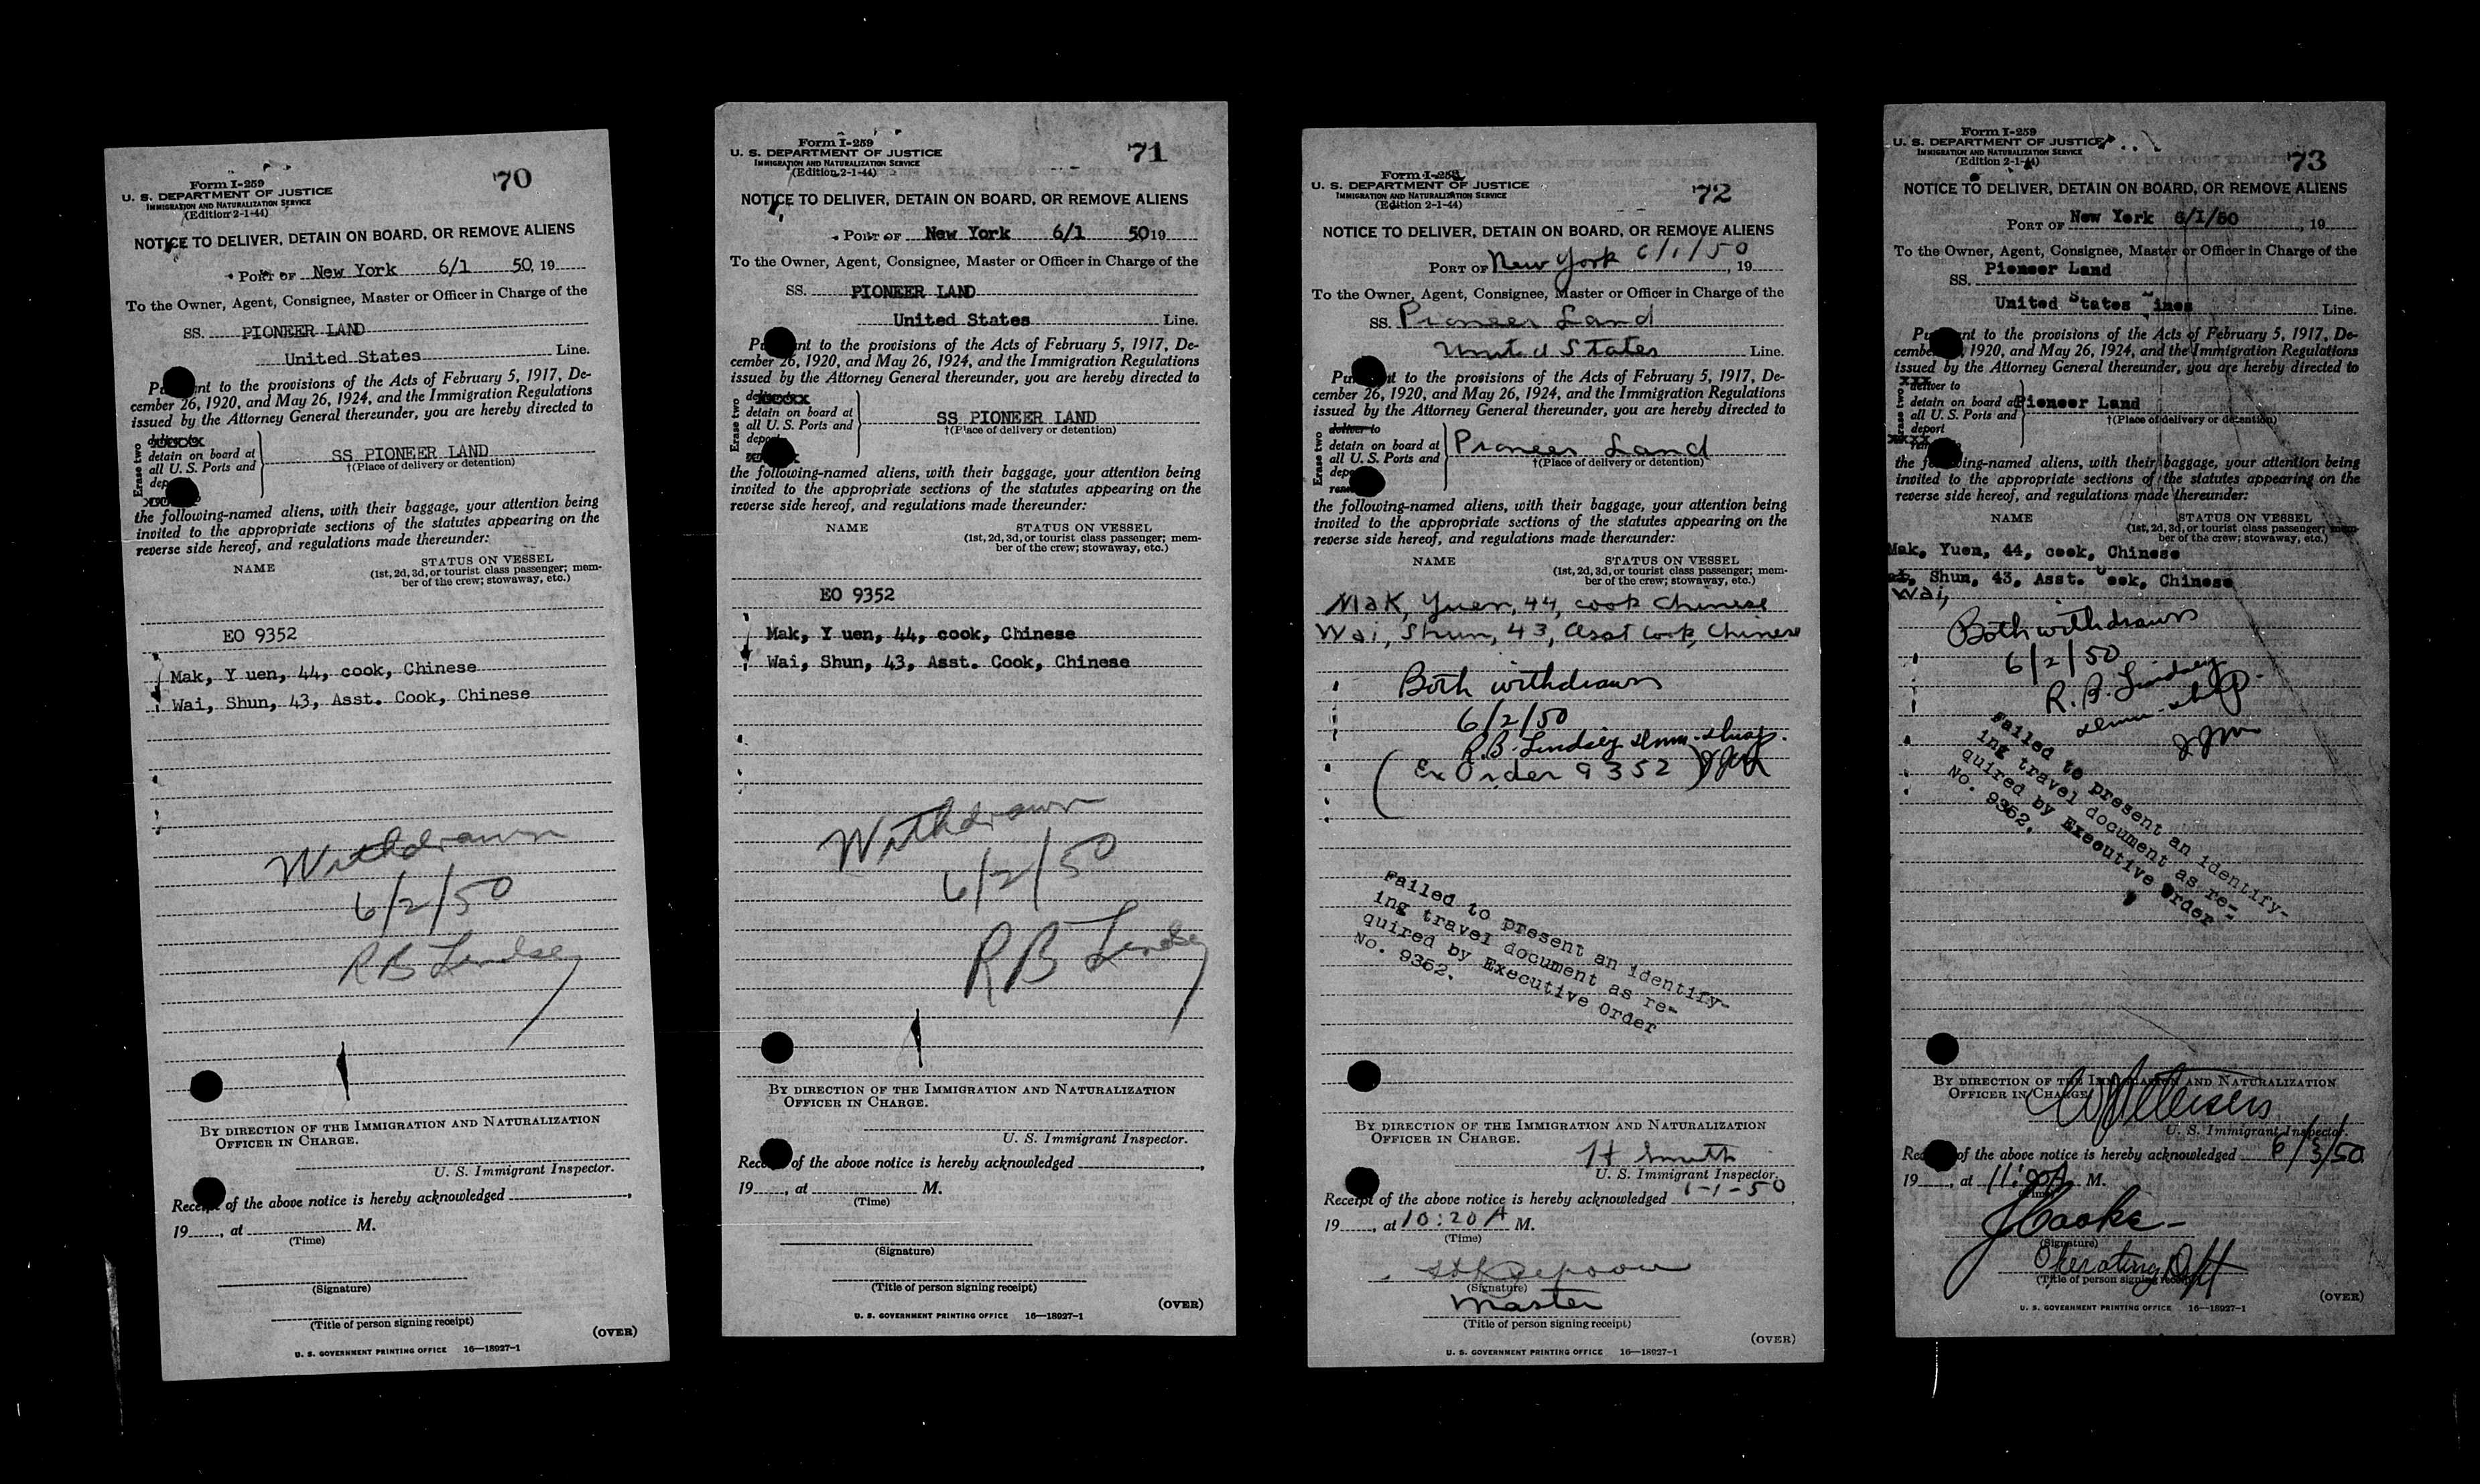 Form I-259
70
U. S. DEPARTMENT OF JUSTICE
IMMIGRATION AND NATURALIZATION SERVICE
(Edition 2-1-44)
NOTICE TO DELIVER, DETAIN ON BOARD, OR REMOVE ALIENS
PORT OF New York 6/1 50, 19
To the Owner, Agent, Consignee, Master or Officer in Charge of the
SS. PIONEER LAND
United States Line.
nt to the provisions of the Acts of February 5, 1917, De-
cember 26, 1920, and May 26, 1924, and the Immigration Regulations
issued by the Attorney General thereunder, you are hereby directed to
Erase two
detain on board at
all U. S. Ports and
SS PIONEER LAND
†(Place of delivery or detention)
the following-named aliens, with their baggage, your attention being
invited to the appropriate sections of the statutes appearing on the
reverse side hereof, and regulations made thereunder:
NAME STATUS ON VESSEL
(1st, 2d, 3d, or tourist class passenger; mem-
ber of the crew; stowaway, etc.)
EO 9352
Mak, Y uen, 44, cook, Chinese
Wai, Shun, 43, Asst. Cook, Chinese
Withdrawn
6/2/50
R B Lindsey
BY DIRECTION OF THE IMMIGRATION AND NATURALIZATION
OFFICER IN CHARGE.
U. S. Immigrant Inspector.
Receipt of the above notice is hereby acknowledged
19 , at M.
(Time)
(Signature)
(Title of person signing receipt)
(OVER)
U. S. GOVERNMENT PRINTING OFFICE 16—18927-1
Form I-259
71
U. S. DEPARTMENT OF JUSTICE
IMMIGRATION AND NATURALIZATION SERVICE
(Edition 2-1-44)
NOTICE TO DELIVER, DETAIN ON BOARD, OR REMOVE ALIENS
PORT OF New York 6/1 50 19
To the Owner, Agent, Consignee, Master or Officer in Charge of the
SS. PIONEER LAND
United States Line.
nt to the provisions of the Acts of February 5, 1917, De-
cember 26, 1920, and May 26, 1924, and the Immigration Regulations
issued by the Attorney General thereunder, you are hereby directed to
Erase two
detain on board at
all U. S. Ports and
deport
SS PIONEER LAND
†(Place of delivery or detention)
the following-named aliens, with their baggage, your attention being
invited to the appropriate sections of the statutes appearing on the
reverse side hereof, and regulations made thereunder:
NAME STATUS ON VESSEL
(1st, 2d, 3d, or tourist class passenger; mem-
ber of the crew; stowaway, etc.)
EO 9352
Mak, Y uen, 44, cook, Chinese
Wai, Shun, 43, Asst. Cook, Chinese
Withdrawn
6/2/50
R B Lindsey
BY DIRECTION OF THE IMMIGRATION AND NATURALIZATION
OFFICER IN CHARGE.
U. S. Immigrant Inspector.
of the above notice is hereby acknowledged
19 , at M.
(Time)
(Signature)
(Title of person signing receipt)
(OVER)
U. S. GOVERNMENT PRINTING OFFICE 16—18927-1
Form I-259
72
U. S. DEPARTMENT OF JUSTICE
IMMIGRATION AND NATURALIZATION SERVICE
(Edition 2-1-44)
NOTICE TO DELIVER, DETAIN ON BOARD, OR REMOVE ALIENS
PORT OF New York 6/1/50, 19
To the Owner, Agent, Consignee, Master or Officer in Charge of the
SS. Pioneer Land
United States Line.
to the provisions of the Acts of February 5, 1917, De-
cember 26, 1920, and May 26, 1924, and the Immigration Regulations
issued by the Attorney General thereunder, you are hereby directed to
Erase two
deliver to
detain on board at
all U. S. Ports and
Pioneer Land
†(Place of delivery or detention)
the following-named aliens, with their baggage, your attention being
invited to the appropriate sections of the statutes appearing on the
reverse side hereof, and regulations made thereunder:
NAME STATUS ON VESSEL
(1st, 2d, 3d, or tourist class passenger; mem-
ber of the crew; stowaway, etc.)
Mak, Yuen, 44, cook Chinese
Wai, Shun, 43, Asst Cook, Chinese
Both withdrawn
6/2/50
R.B. Lindsey Imm. Insp.
(Ex Order 9352)
Failed to present an identify-
ing travel document as re-
quired by Executive Order
No. 9352.
BY DIRECTION OF THE IMMIGRATION AND NATURALIZATION
OFFICER IN CHARGE.
H Smith
U. S. Immigrant Inspector.
Receipt of the above notice is hereby acknowledged -1-50,
19 , at 10:20 A M.
(Time)
(Signature)
Master
(Title of person signing receipt)
(OVER)
U. S. GOVERNMENT PRINTING OFFICE 16—18927-1
Form I-259
73
U. S. DEPARTMENT OF JUSTICE
IMMIGRATION AND NATURALIZATION SERVICE
(Edition 2-1-44)
NOTICE TO DELIVER, DETAIN ON BOARD, OR REMOVE ALIENS
PORT OF New York 6/1/50, 19
To the Owner, Agent, Consignee, Master or Officer in Charge of the
SS. Pioneer Land
United States Lines Line.
nt to the provisions of the Acts of February 5, 1917, De-
1920, and May 26, 1924, and the Immigration Regulations
issued by the Attorney General thereunder, you are hereby directed to
Erase two
deliver to
detain on board at
all U. S. Ports and
deport
Pioneer Land
†(Place of delivery or detention)
the following-named aliens, with their baggage, your attention being
invited to the appropriate sections of the statutes appearing on the
reverse side hereof, and regulations made thereunder:
NAME STATUS ON VESSEL
(1st, 2d, 3d, or tourist class passenger; mem-
ber of the crew; stowaway, etc.)
Mak, Yuen, 44, cook, Chinese
Shun, 43, Asst. Cook, Chinese
Wai,
Both withdrawn
6/2/50
R. B. Lindsey
Failed to present an identify-
ing travel document as re-
quired by Executive Order
No. 9352.
BY DIRECTION OF THE IMMIGRATION AND NATURALIZATION
OFFICER IN CHARGE.
U. S. Immigrant Inspector.
of the above notice is hereby acknowledged 6/3/50
19 , at 11: M.
(Time)
J Cooke
(Signature)
Operating Dept
(Title of person signing receipt)
(OVER)
U. S. GOVERNMENT PRINTING OFFICE 16—18927-1